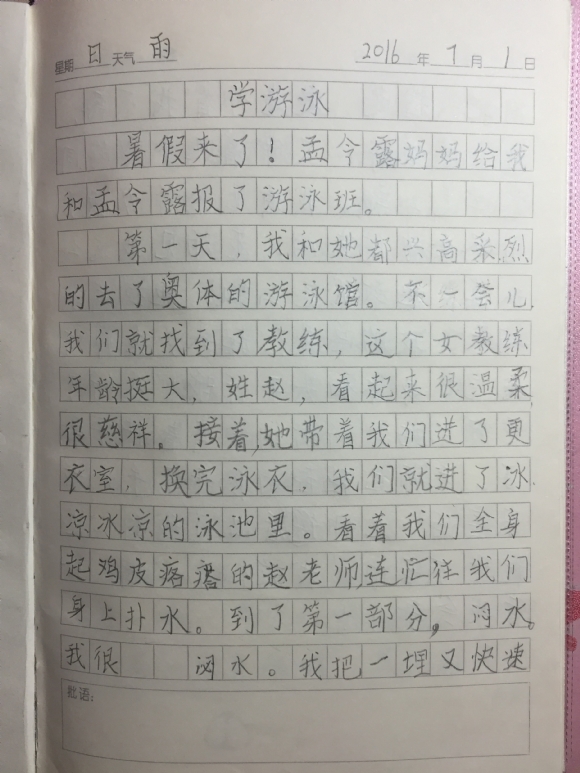 星期 日 天气 雨 2016 年 7 月 1 日
学游泳
暑假来了！孟令露妈妈给我
和孟令露报了游泳班。
第一天，我和她都兴高采烈
的去了奥体的游泳馆。不一会儿，
我们就找到了教练，这个女教练
年龄挺大，姓赵，看起来很温柔，
很慈祥。接着，她带着我们进了更
衣室，换完泳衣，我们就进了冰
凉冰凉的泳池里。看着我们全身
起鸡皮疙瘩的赵老师，连忙往我们
身上扑水。到了第一部分，闷水。
我很 闷水。我把一埋又快速
批语：